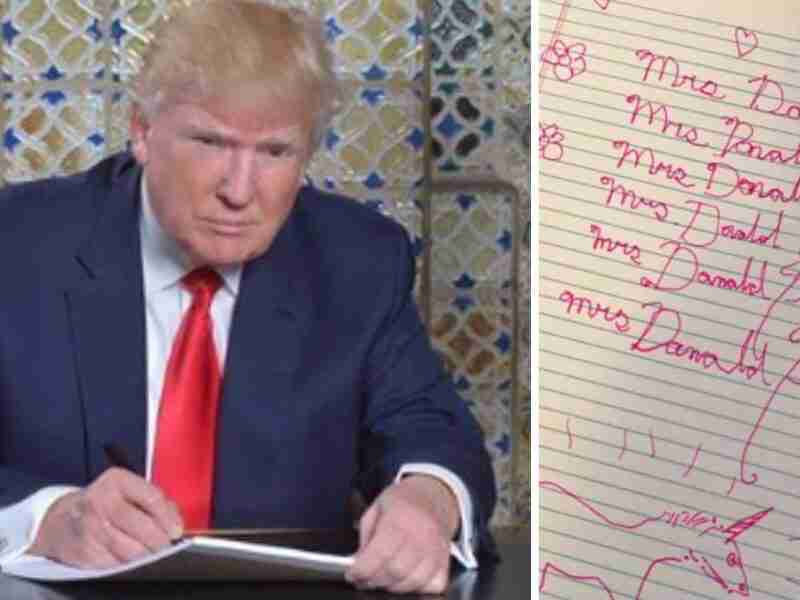 Mrs Do
Mrs
Mrs Donal
Mrs Donald
Mrs Donald
Mrs Donald